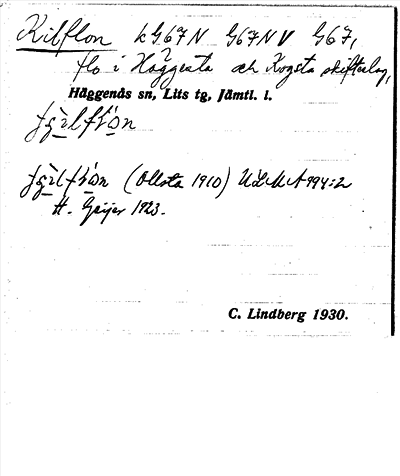 Kilflon kG67N G67NV G67,
flo i Häggesta och Kogsta skifteslag,
Häggenås sn, Lits tg, Jämtl. l.
(Ollsta 1910) ULMA 994:2
H. Geijer 1923.
C. Lindberg 1930.